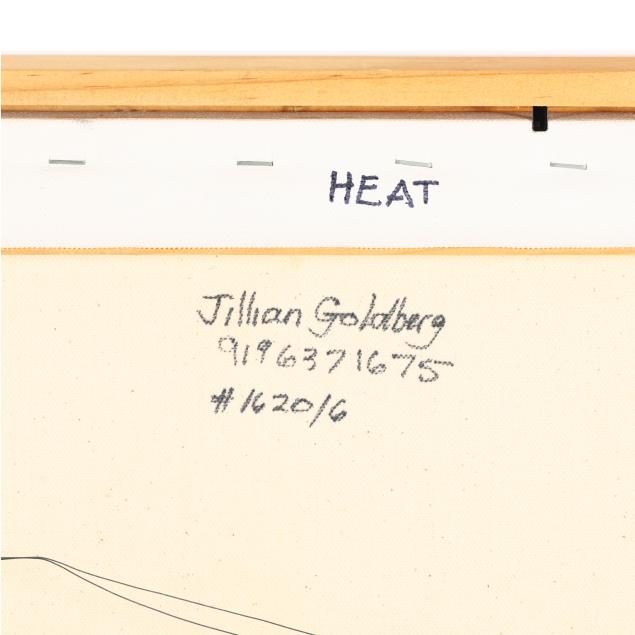 HEAT
Jillian Goldberg
9196371675
#162016